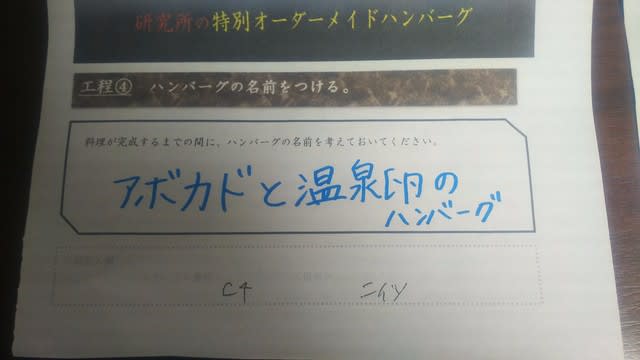 研究所の特別オーダーメイドハンバーグ
工程④ ハンバーグの名前をつける。
料理が完成するまでの間に、ハンバーグの名前を考えておいてください。
アボカドと温泉卵の
ハンバーグ